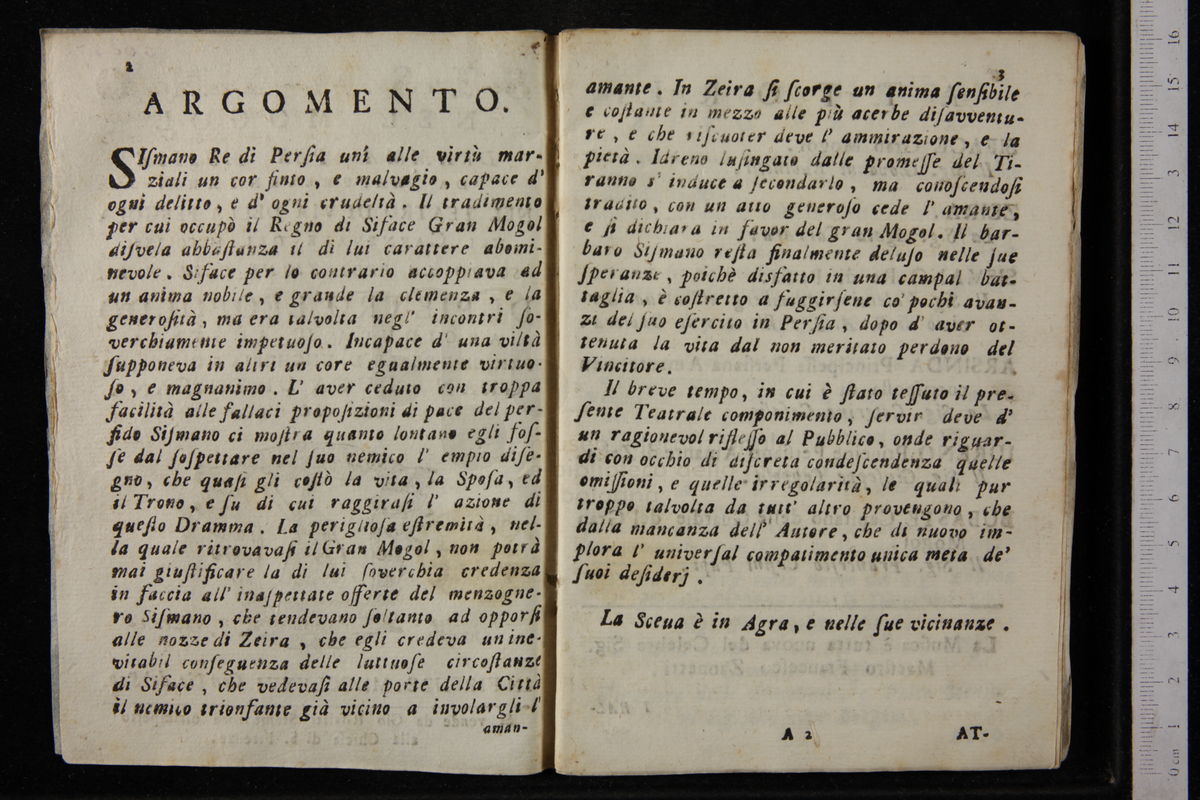 2
ARGOMENTO.
SIſmano Re di Perſia unì alle virtù mar-
ziali un cor finto, e malvagio, capace d'
ogni delitto, e d' ogni crudeltà. Il tradimento
per cui occupò il Regno di Siface Gran Mogol
diſvela abbaſtanza il di lui carattere abomi-
nevole. Siface per lo contrario accoppiava ad
un anima nobile, e grande la clemenza, e la
generoſità, ma era talvolta negl' incontri ſo-
verchiamente impetuoſo. Incapace d' una viltà
ſupponeva in altri un core egualmente virtuo-
ſo, e magnanimo. L' aver ceduto con troppa
facilità alle fallaci propoſizioni di pace del per-
fido Siſmano ci moſtra quanto lontano egli foſ-
ſe dal ſoſpettare nel ſuo nemico l' empio diſe-
gno, che quaſi gli coſtò la vita, la Spoſa, ed
il Trono, e ſu di cui raggiraſi l' azione di
queſto Dramma. La periglioſa eſtremità, nel-
la quale ritrovavaſi il Gran Mogol, non potrà
mai giuſtificare la di lui ſoverchia credenza
in faccia all' inaſpettate offerte del menzogne-
ro Siſmano, che tendevano ſoltanto ad opporſi
alle nozze di Zeira, che egli credeva un ine-
vitabil conſeguenza delle luttuoſe circoſtanze
di Siface, che vedevaſi alle porte della Città
il nemico trionfante già vicino a involargli l'
aman-
3
amante. In Zeira ſi ſcorge un anima ſenſibile
e coſtante in mezzo alle più acerbe diſavventu-
re, e che riſcuoter deve l' ammirazione, e la
pietà. Idreno luſingato dalle promeſſe del Ti-
ranno s' induce a ſecondarlo, ma conoſcendoſi
tradito, con un atto generoſo cede l' amante,
e ſi dichiara in favor del gran Mogol. Il bar-
baro Siſmano reſta finalmente deluſo nelle ſue
ſperanze, poichè disfatto in una campal bat-
taglia, è coſtretto a fuggirſene co' pochi avan-
zi del ſuo eſercito in Perſia, dopo d' aver ot-
tenuta la vita dal non meritato perdono del
Vincitore.
Il breve tempo, in cui è ſtato teſſuto il pre-
ſente Teatrale componimento, ſervir deve d'
un ragionevol rifleſſo al Pubblico, onde riguar-
di con occhio di diſcreta condeſcendenza quelle
omiſſioni, e quelle irregolarità, le quali pur
troppo talvolta da tutt' altro provengono, che
dalla mancanza dell' Autore, che di nuovo im-
plora l' univerſal compatimento unica meta de'
ſuoi deſiderj.
La Sceua è in Agra, e nelle ſue vicinanze.
A 2
AT-
0 cm 1 2 3 4 5 6 7 8 9 10 11 12 13 14 15 16